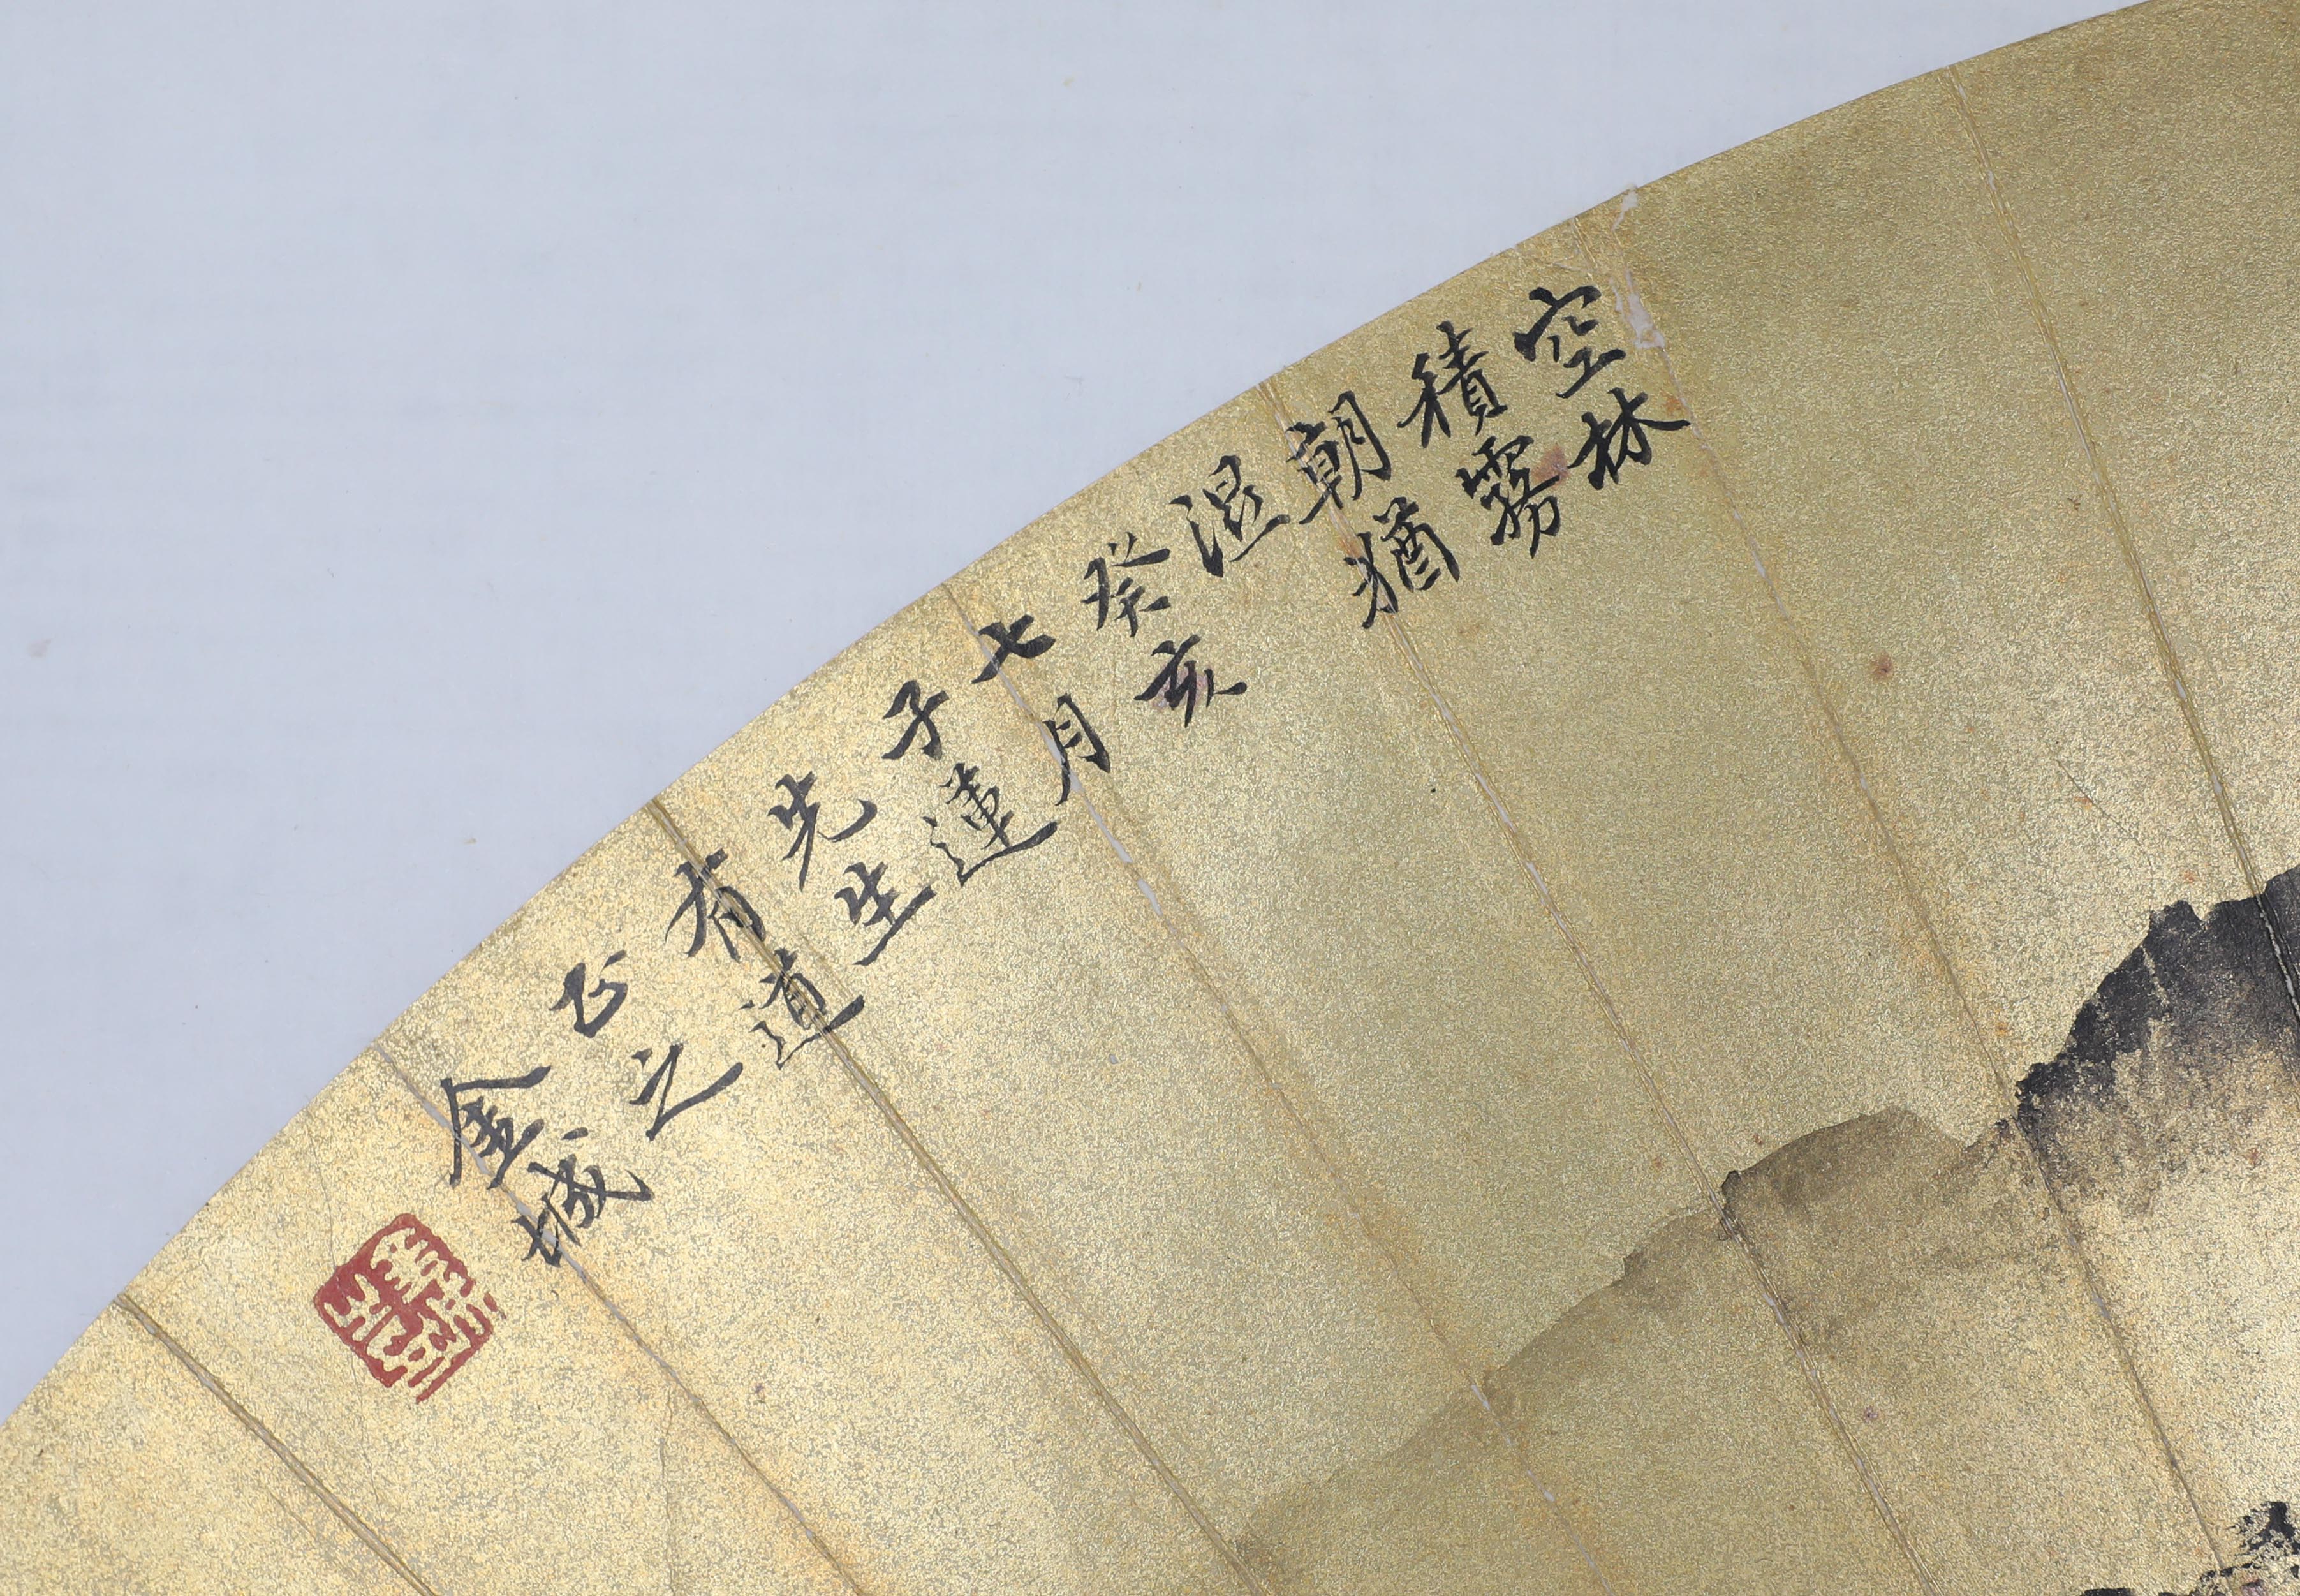 空林
積霧
朝猶
溼
癸亥
七月
子蓮
先生
有道
正之
金城